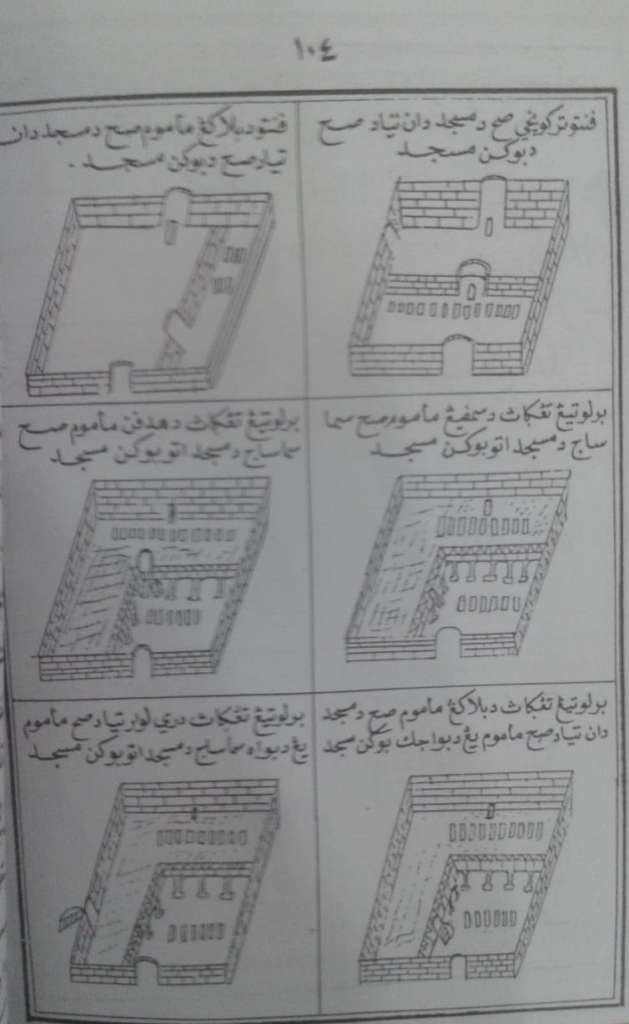 ١٠٤
فنتو تركونچي صح دمسجد دان تياد صح
دبوكن مسجد
فنتو دبلاكڠ مأموم صح دمسجد دان
تياد صح دبوكن مسجد .
برلوتيڠ تڠكاث دسمفيڠ مأموم صح سما
ساج دمسجد اتو بوكن مسجد
برلوتيڠ تڠكاث دهدفن مأموم صح
سماساج دمسجد اتو بوكن مسجد
برلوتيڠ تڠكاث دبلاكڠ مأموم صح دمسجد
دان تياد صح مأموم يڠ دبواه جك بوكن مسجد
برلوتيڠ تڠكاث دري لوار تياد صح مأموم
يڠ دبواه سماساج دمسجد اتو بوكن مسجد